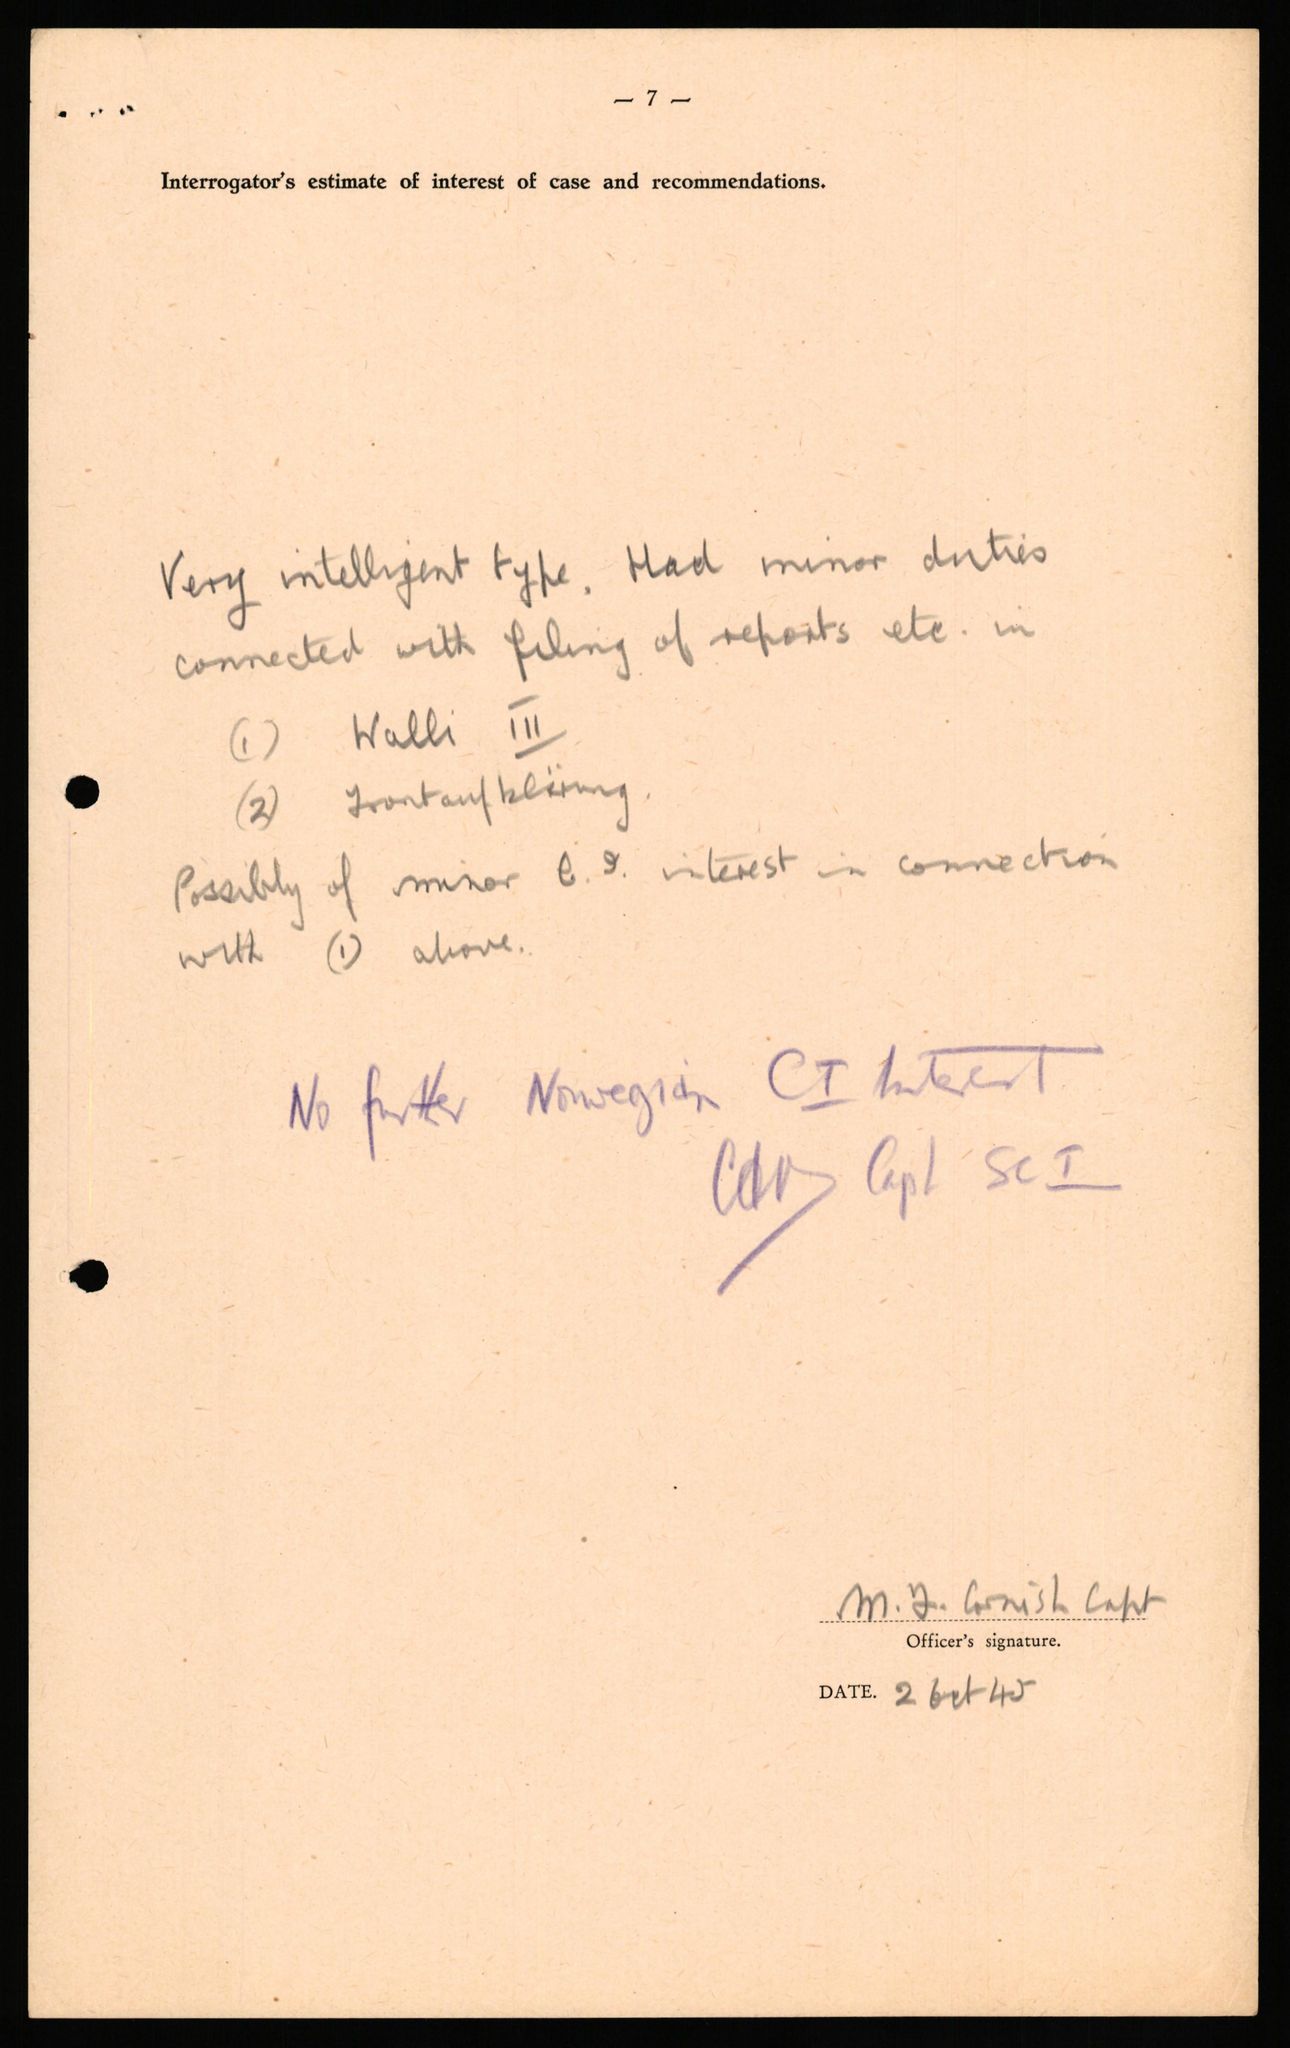 — 7 —
Interrogator's estimate of interest of case and recommendations.
Very intelligent type. Had minor duties
connected with filing of reports etc. in
(1) Walli III
(2) Frontaufklärung.
Possibly of minor C.I. interest in connection
with (1) above.
No further Norwegian CI Interest
Capt SCI
M.F. Cornish Capt
Officer's signature.
DATE. 2 Oct 45